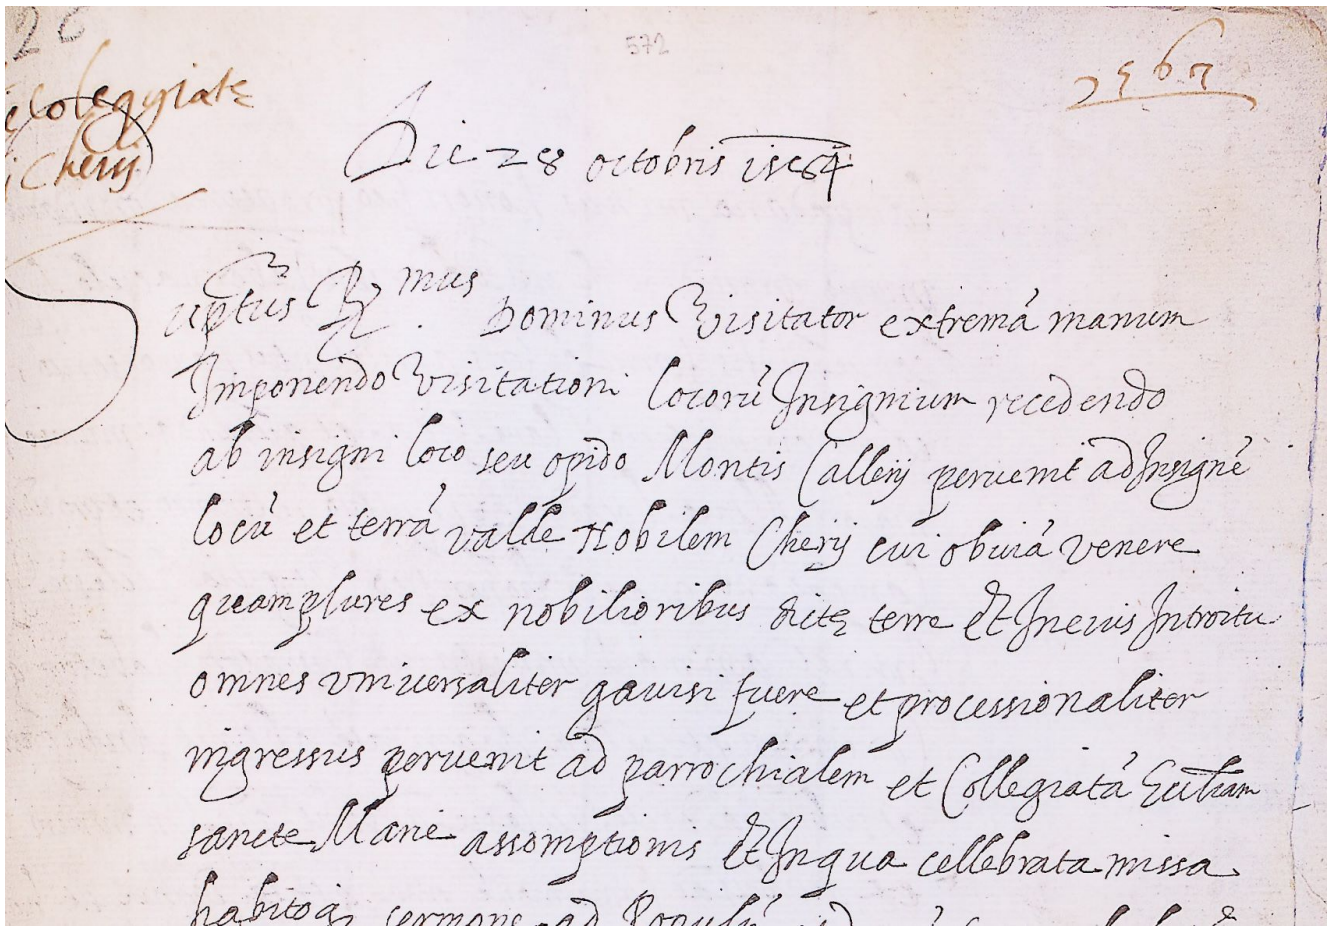 572
Colegyiatę
Cherij
Die 28 octobris 1584
Uptus R mus Dominus Visitator extremā manum
Imponendo Visitationi locorū Insignium recedendo
ab insigni loco seu opido Montis Callerij peruenit ad Insignē
locū et terrā valde Nobilem Cherij cui obuiā venere
quamplures ex nobilioribus dictę terre Et In eius Introitu
omnes vniuersaliter gauisi fuere et processionaliter
ingressus peruenit ad parrochialem et Collegiatā Eccliam
sancte Marie assomptionis Et In qua cellebrata missa
habitoq sermone ad Populū